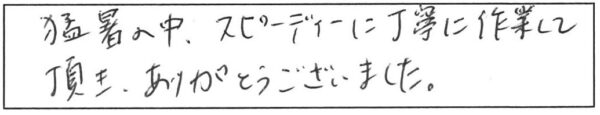 猛暑の中、スピーディーに丁寧に作業して
頂き、ありがとうございました。